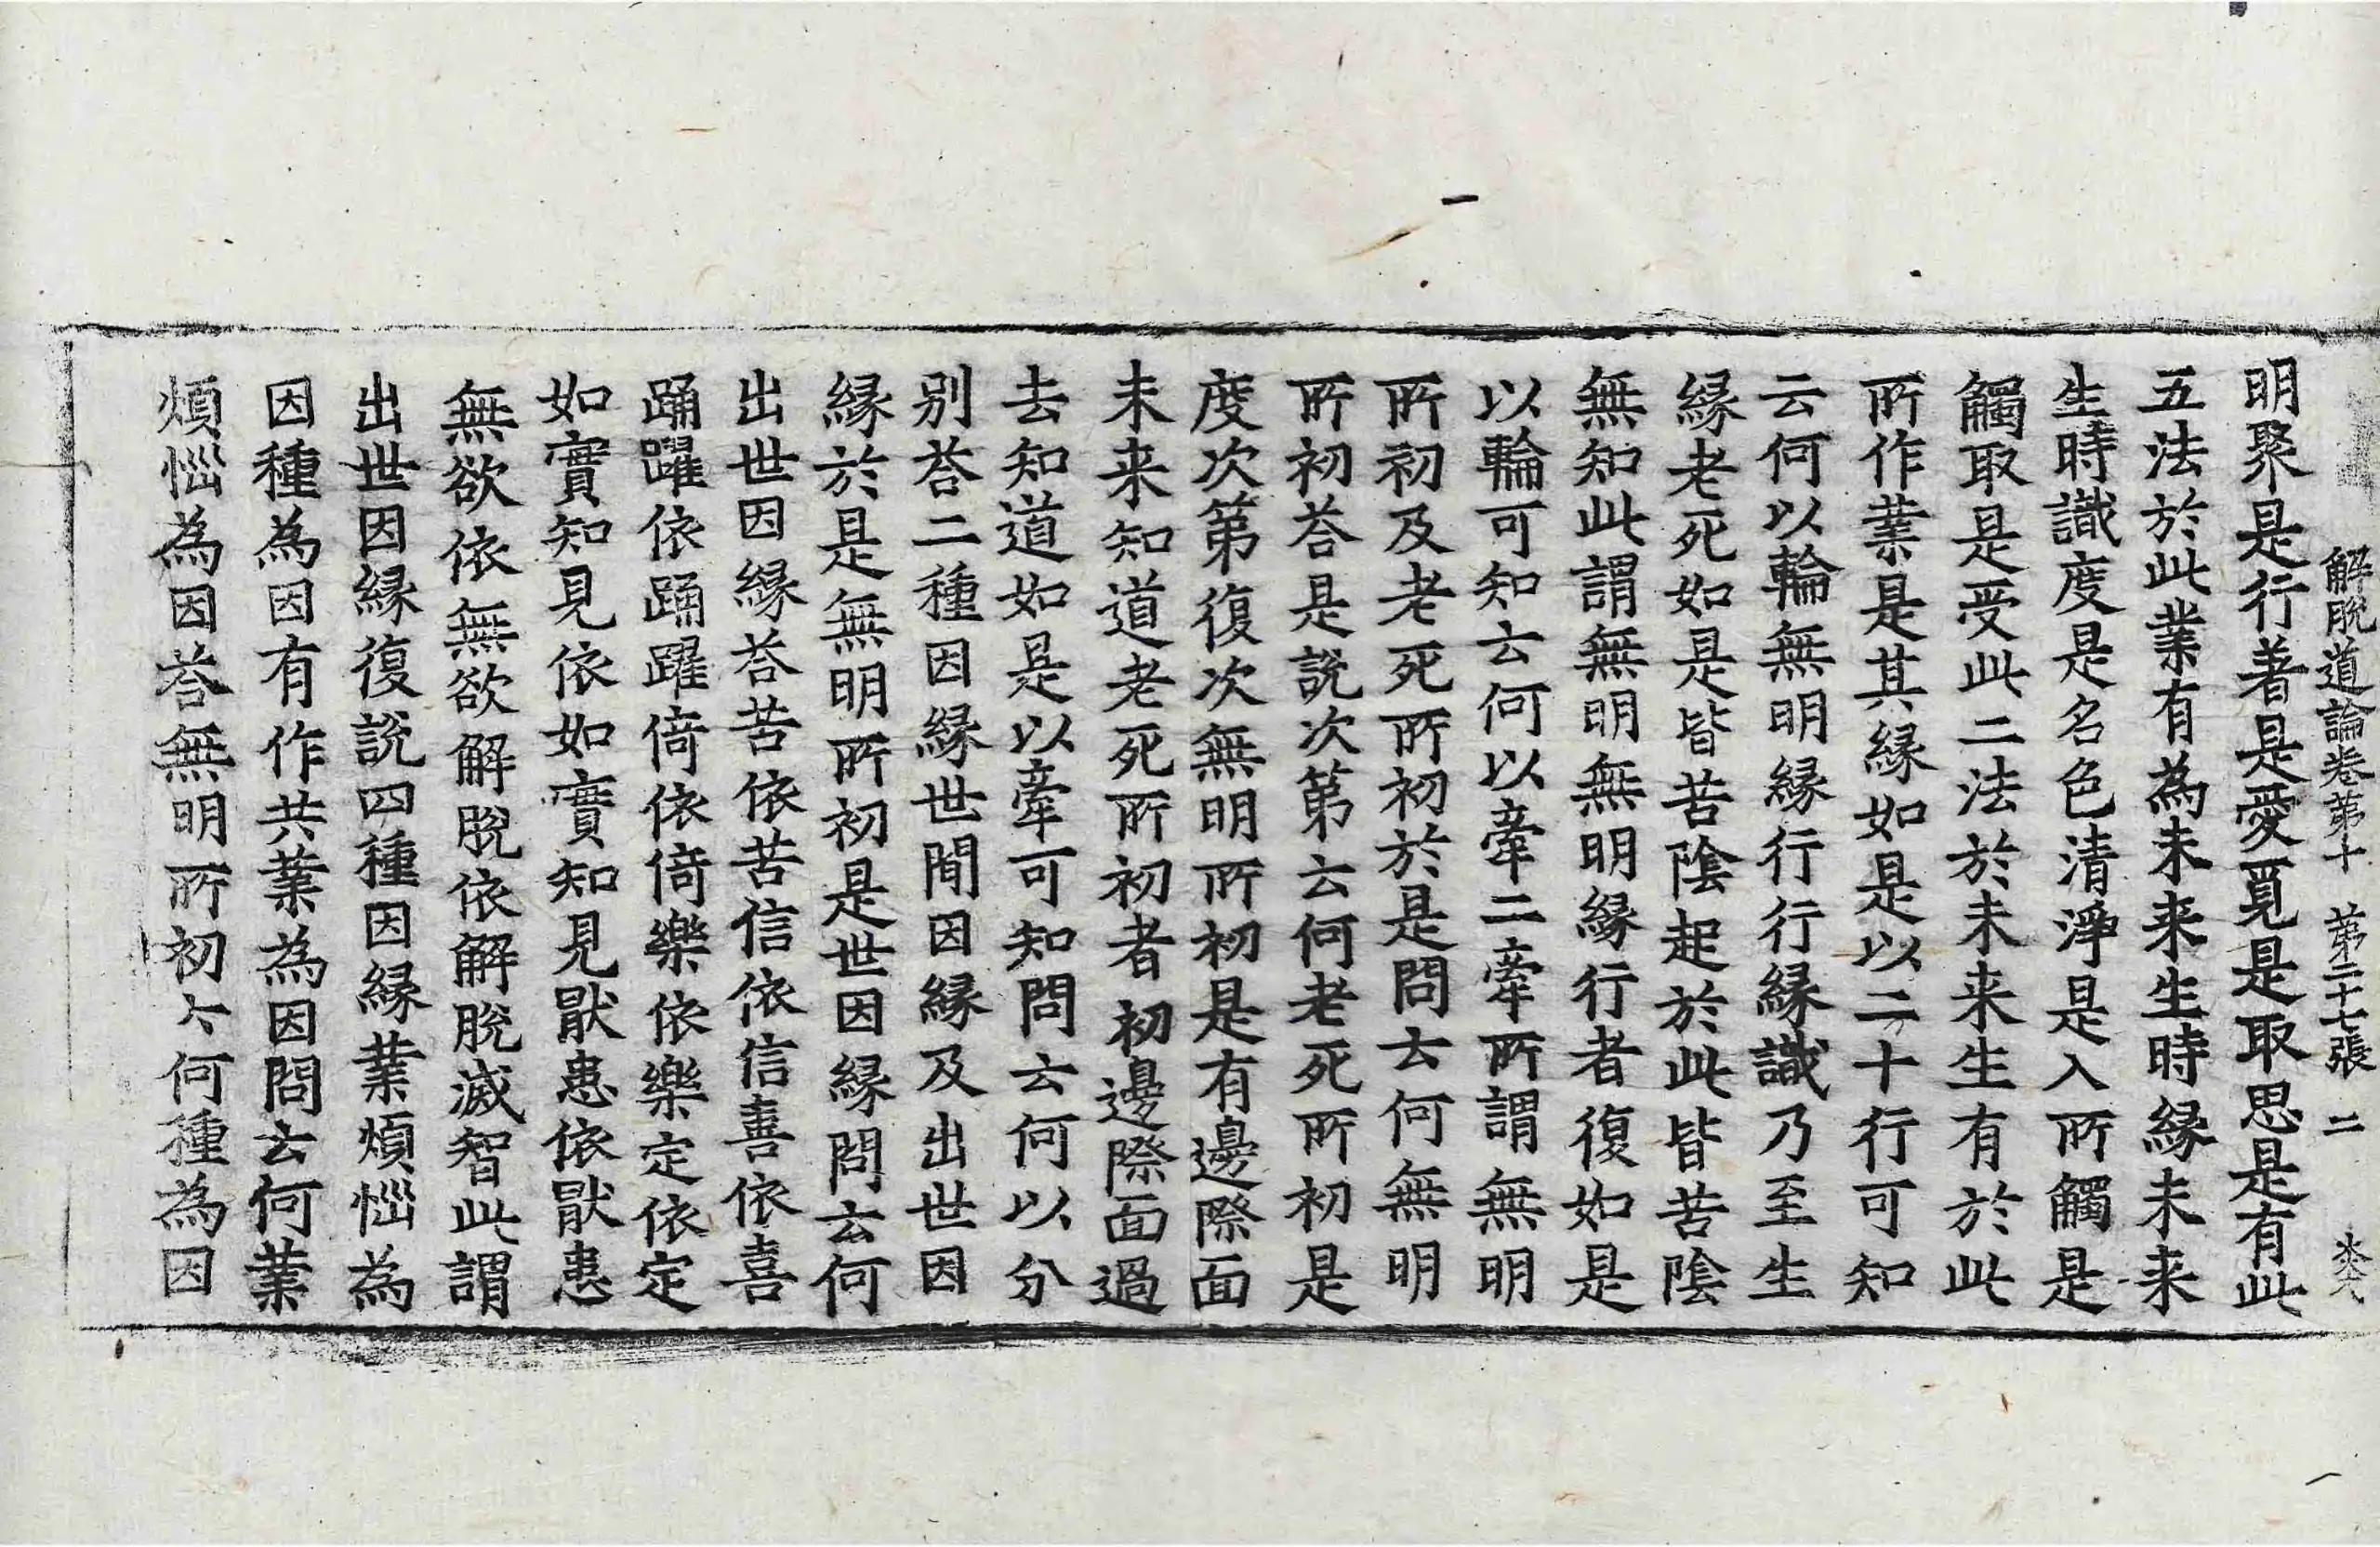 解脫道論卷第十　第二十七張　二
明聚是行著是愛覓是取思是有此
五法於此業有為未来生時緣未来
生時識度是名色清淨是入所觸是
觸取是受此二法於未来生有於此
所作業是其緣如是以二十行可知
云何以輪無明緣行行緣識乃至生
緣老死如是皆苦陰起於此皆苦陰
無知此謂無明無明緣行者復如是
以輪可知云何以牽二牽所謂無明
所初及老死所初於是問云何無明
所初荅是說次第云何老死所初是
度次第復次無明所初是有邊際面
未来知道老死所初者初邊際面過
去知道如是以牽可知問云何以分
別荅二種因緣世間因緣及出世因
緣於是無明所初是世因緣問云何
出世因緣荅苦依苦信依信喜依喜
踊躍依踊躍倚依倚樂依樂定依定
如實知見依如實知見猒患依猒患
無欲依無欲解脫依解脫滅智此謂
出世因緣復說四種因緣業煩惱為
因種為因有作共業為因問云何業
煩惱為因荅無明所初云何種為因